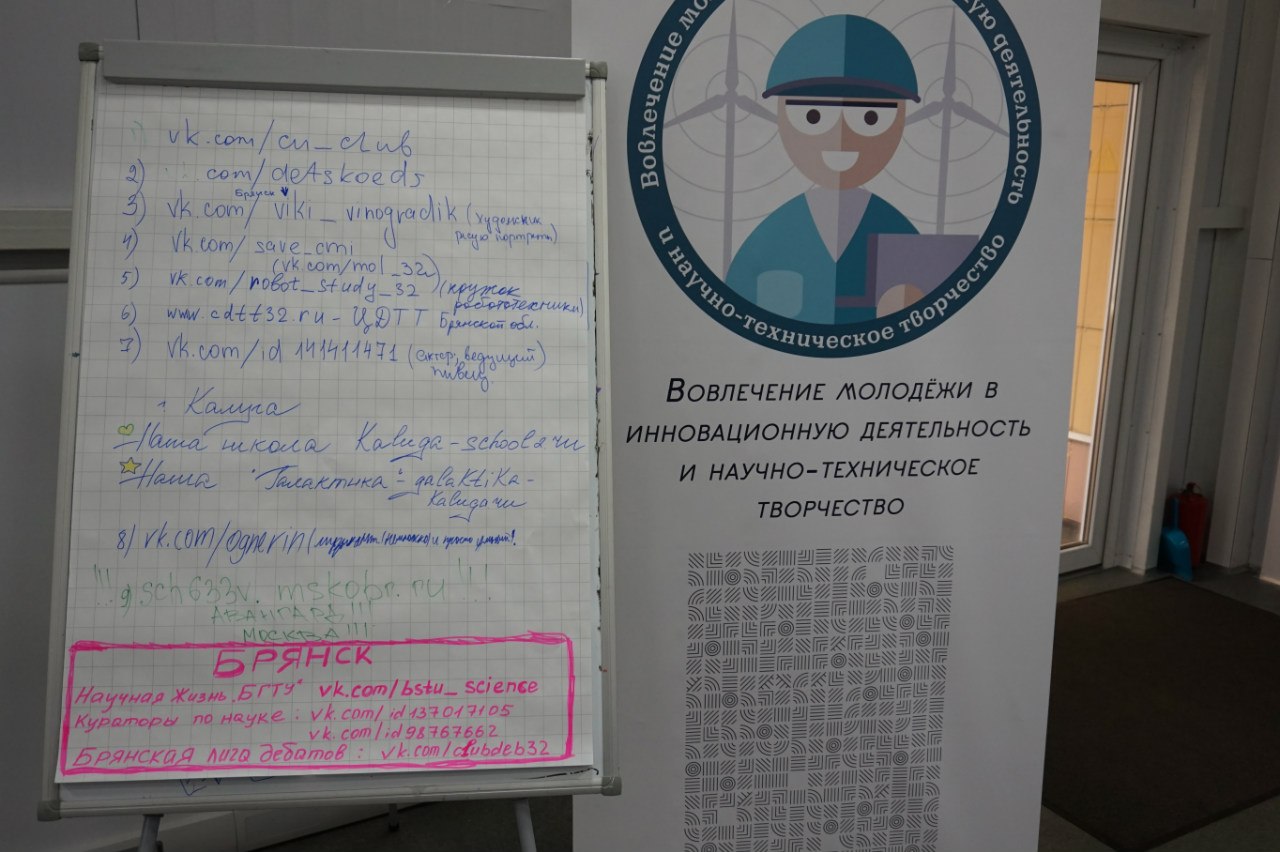 1) vk.com/cu_club
2) com/detskoeds
Брянск
3) vk.com/viki_vinogradik (художник
рисую портреты)
4) vk.com/save_cmi
(vk.com/mol_32)
5) vk.com/robot_study_32 (кружок
робототехники)
6) www.cdtt32.ru - ЦДТТ Брянской обл.
7) vk.com/id 141411471 (актер, ведущий)
певец
г. Калуга
Наша школа
Наша Галактика - galaktika-
8) vk.com/ognerin ( и просто !
!!! gsch633v.mskobr.ru !!!
АВАНГАРД!!!
МОСКВА!!!
БРЯНСК
Научная Жизнь "БГТУ" vk.com/bstu_science
Кураторы по науке : vk.com/id137017105
vk.com/id98767662
Брянская лига дебатов : vk.com/clubdeb32
Вовлечение мо ую деятельность
и научно-техническое творчество
Вовлечение молодёжи в
инновационную деятельность
и научно-техническое
творчество